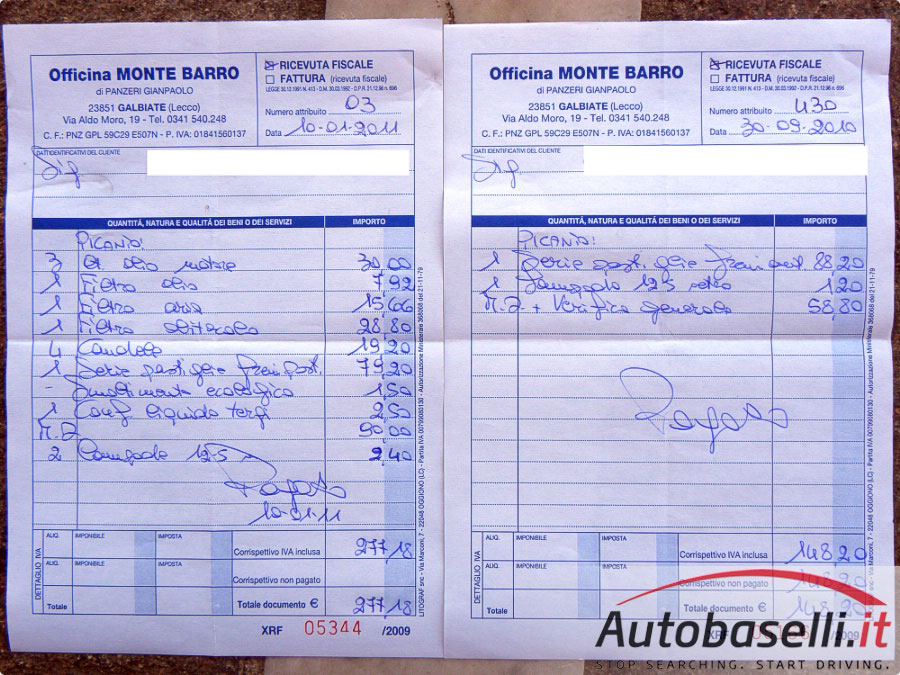 Officina MONTE BARRO
di PANZERI GIANPAOLO
23851 GALBIATE (Lecco)
Via Aldo Moro, 19 - Tel. 0341 540.248
C. F.: PNZ GPL 59C29 E507N - P. IVA: 01841560137
RICEVUTA FISCALE
FATTURA (ricevuta fiscale)
LEGGE 30.12.1991 N. 413 - D.M. 30.03.1992 - D.P.R. 21.12.96 n. 696
Numero attribuito 03
Data 10-01-2011
DATI IDENTIFICATIVI DEL CLIENTE
Sig.
QUANTITÀ, NATURA E QUALITÀ DEI BENI O DEI SERVIZI IMPORTO
PICANTO:
3 lt. olio motore 30,00
1 Filtro olio 7,92
1 Filtro aria 15,66
1 Filtro abitacolo 28,80
4 Candele 19,20
1 Serie pastiglie freni post. 79,20
- Smaltimento ecologico 1,50
1 Conf. liquido tergi 2,50
M.D. 90,00
2 Lampade 12-5 2,40
Pagato
10-01-11
DETTAGLIO IVA
ALIQ. IMPONIBILE IMPOSTA
Corrispettivo IVA inclusa 277,18
ALIQ. IMPONIBILE IMPOSTA
Corrispettivo non pagato
Totale Totale documento € 277,18
XRF 05344 /2009
LITOGRAF snc - Via Marconi, 7 - 22048 OGGIONO (LC) - Partita IVA 00799060130 - Autorizzazione Ministeriale 368068 del 21-11-79
Officina MONTE BARRO
di PANZERI GIANPAOLO
23851 GALBIATE (Lecco)
Via Aldo Moro, 19 - Tel. 0341 540.248
C. F.: PNZ GPL 59C29 E507N - P. IVA: 01841560137
RICEVUTA FISCALE
FATTURA (ricevuta fiscale)
LEGGE 30.12.1991 N. 413 - D.M. 30.03.1992 - D.P.R. 21.12.96 n. 696
Numero attribuito 430
Data 30-09-2010
DATI IDENTIFICATIVI DEL CLIENTE
Sig.
QUANTITÀ, NATURA E QUALITÀ DEI BENI O DEI SERVIZI IMPORTO
PICANTO:
1 Serie pastiglie freni ant. 88,20
1 Lampada 12-5 retro 1,20
M.D. + Verifica generale 58,80
Pagato
DETTAGLIO IVA
ALIQ. IMPONIBILE IMPOSTA
Corrispettivo IVA inclusa 148,20
ALIQ. IMPONIBILE IMPOSTA
Corrispettivo non pagato 148,20
Totale Totale documento € 148,20
XRF /2009
7 - 22048 OGGIONO (LC) - Partita IVA 00799060130 - Autorizzazione Ministeriale 368068 del 21-11-79
Autobaselli.it
STOP SEARCHING. START DRIVING.